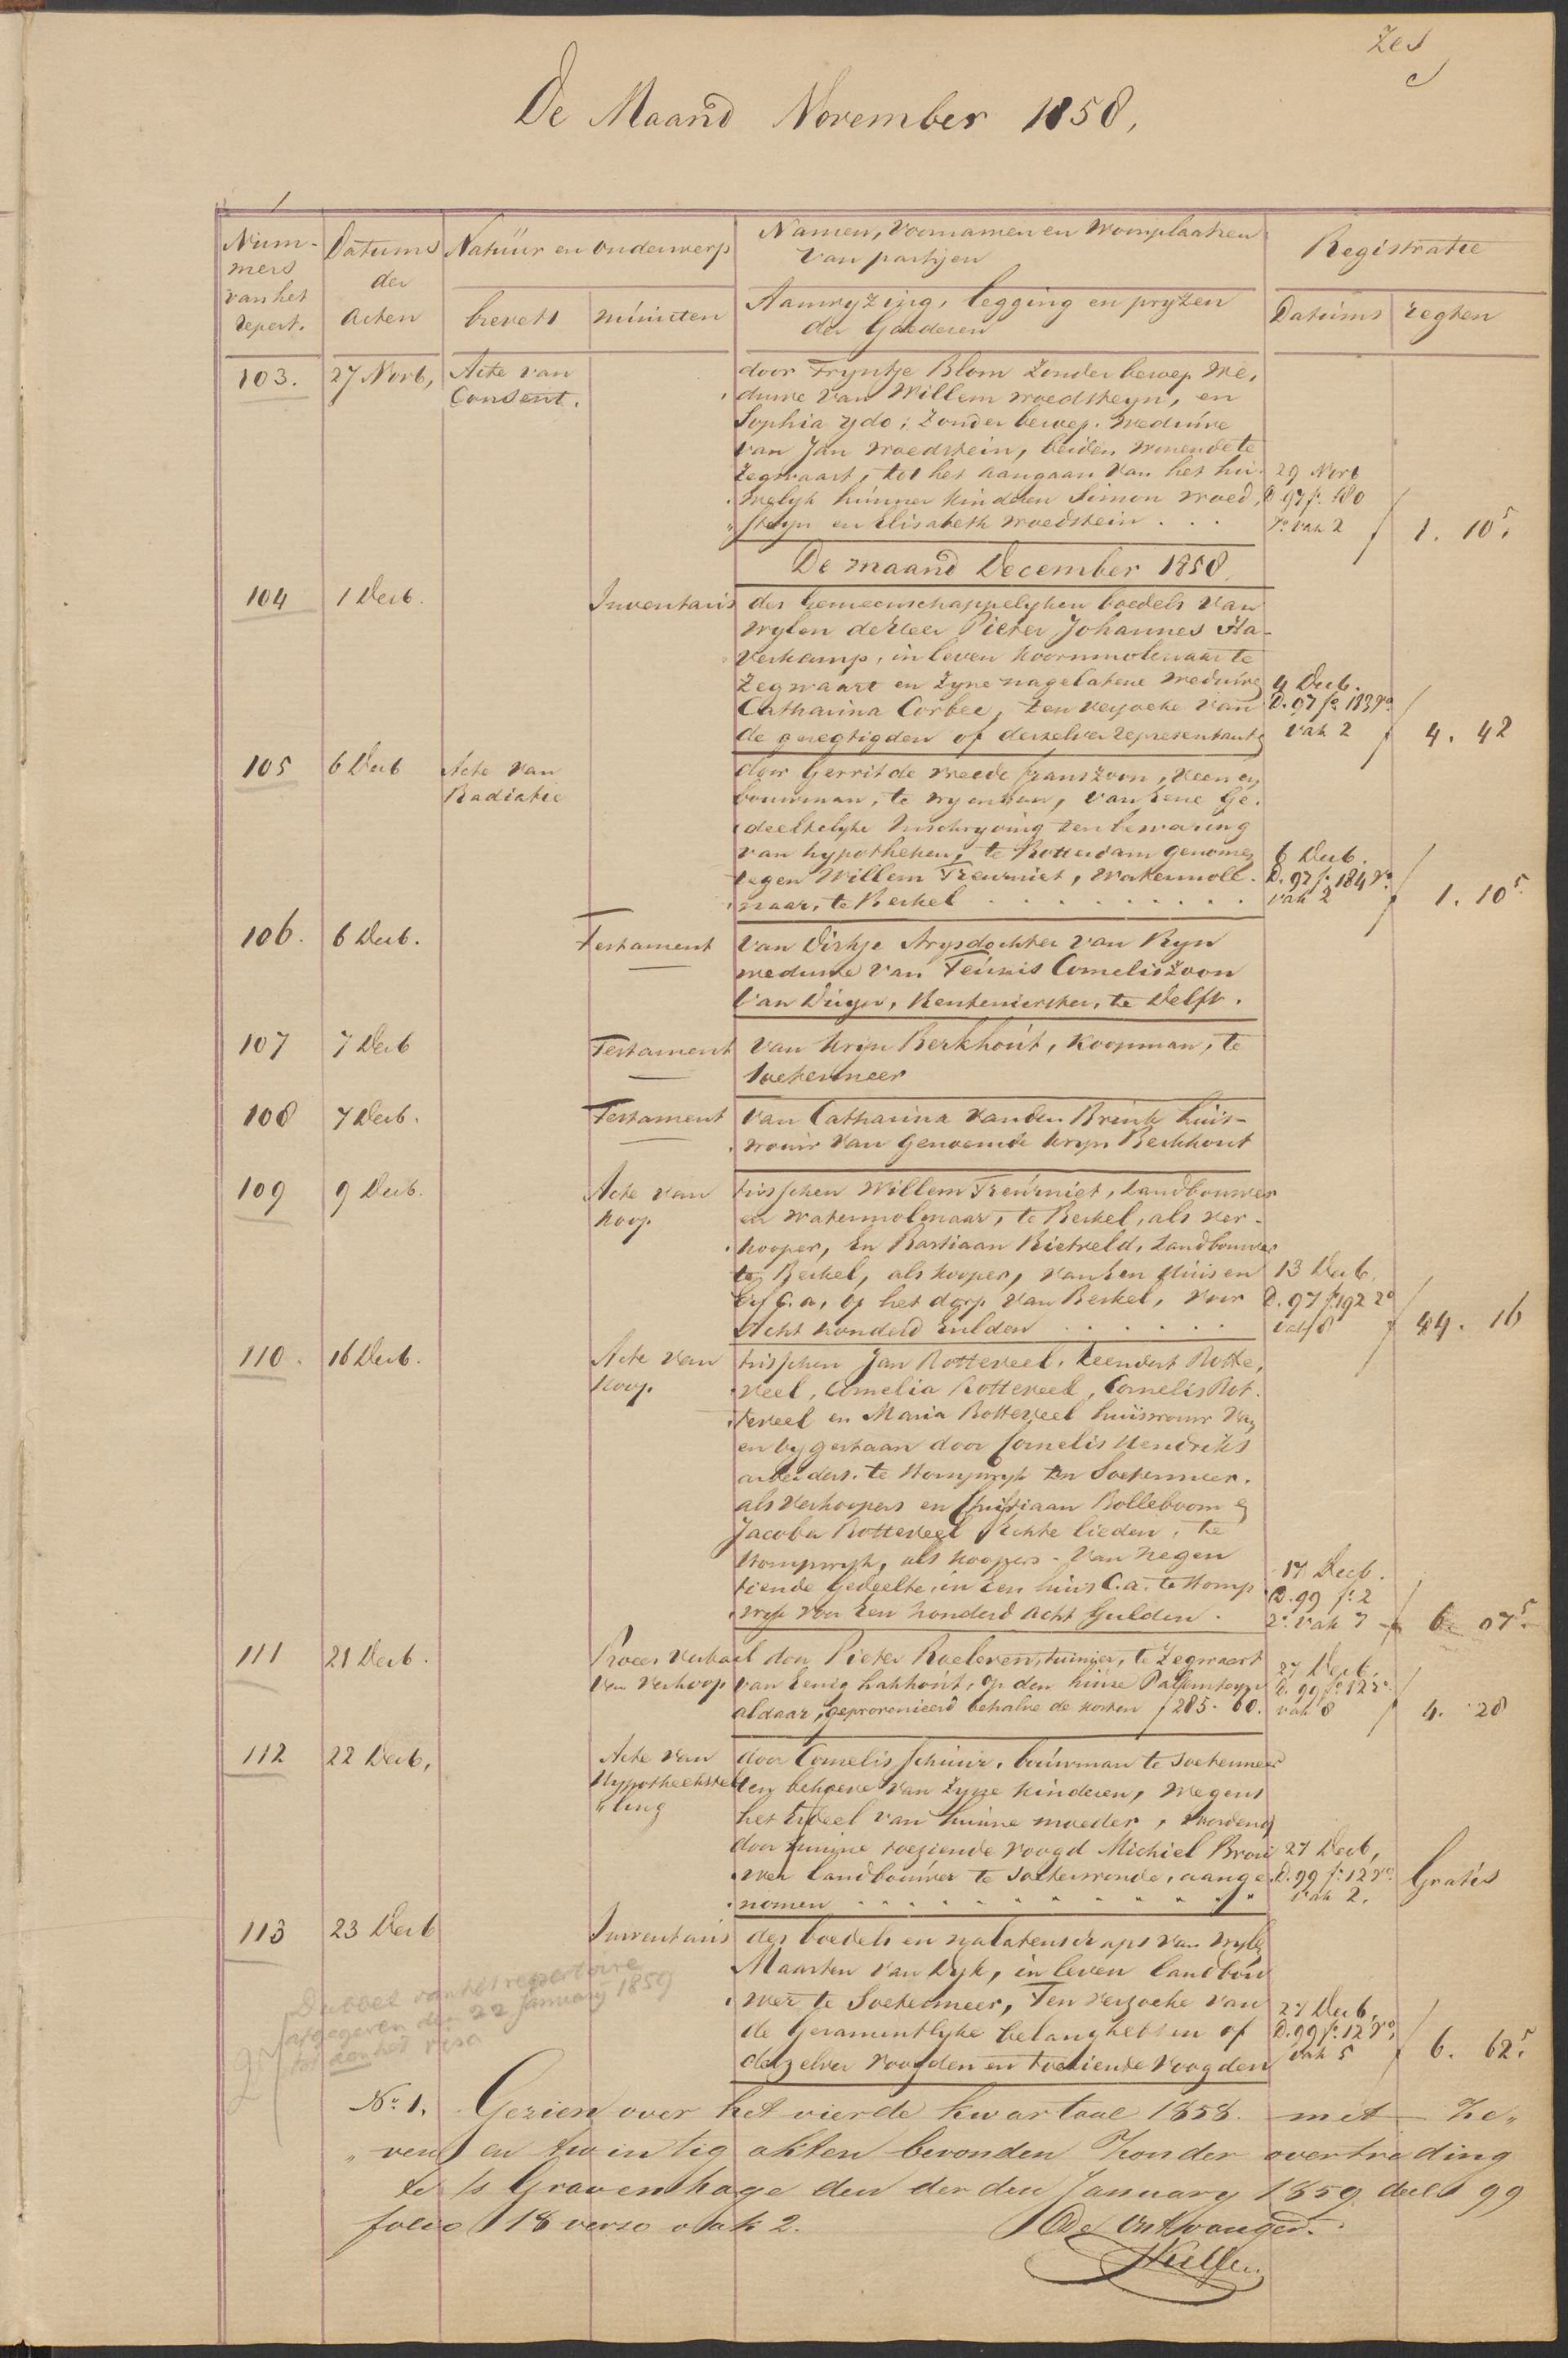 zes
De Maand November 1858.
Num-
mers
van het
repert.
Datums
der
Acten
Natuur en onderwerp
brevets
minuten
Namen, Voornamen en Woonplaatsen
van partijen
Aanwyzing, legging en pryzen
der Goederen
Registratie
Datums
regten
103.
27 Novb,
Acte van
Consent.
door Tryntje Blom zonder beroep We,
duwe van Willem Moedsteyn, en
Sophia Ydo, zonder beroep. Weduwe
van Jan Moedstein, beiden wonende te
Zegwaart, tot het aangaan van het hu-
welyk hunner kinderen Simon Moed,
steyn en Elisabeth Moedstein . . .
29 Novb
D 97 f. 180
vo vak 2
1. 10⁵
De maand December 1858.
104
1 Decb.
Inventaris
des Gemeenschappelyken boedels van
wylen de Heer Pieter Johannes Ha-
verkamp, in leven koornmolenaar te
Zegwaart en zyne nagelatene weduwe
Catharina Corbee, ten verzoeke van
de geregtigden of derzelver representanten
4 Decb.
D. 97 fo 183 vo
vak 2
4. 42
105
6 Decb
Acte van
Radiatie
door Gerrit de Vreede franszoon, veen en
bouwman, te , van eene Ge-
deeltelyke Inschryving ten bewaring
van hypotheken, te Rotterdam genomen
tegen Willem Treurniet, Watermole-
naar, te Berkel . . . . . . . . .
6 Decb.
D. 97 f. 184 vo
vak 2
1. 10⁵
106.
6 Decb.
Testament
van Dirkje Arysdochter van Ryn
weduwe van Teunis Corneliszoon
van Duyn, Rentenierster, te Delft.
107
7 Decb
Testament
van Kryn Berkhout, Koopman, te
Soetermeer
108
7 Decb.
Testament
van Catharina van den Brink huis-
vrouw van genoemde Kryn Berkhout
109
9 Decb.
Acte van
koop
tusschen Willem Treurniet, Landbouwer
en watermolenaar, te Berkel, als ver-
kooper, En Bastiaan Rietveld, Landbouwer
te Berkel, als kooper, van een Huis en
Erf c.a, op het dorp van Berkel, voor
Acht honderd Gulden . . . . . .
13 Decb.
D. 97 f. 192 ro
vak 8
44. 16
110.
16 Decb.
Acte van
koop.
tusschen Jan Rotteveel, Leendert Rotte,
veel, Cornelia Rotteveel, Cornelis Rot-
teveel en Maria Rotteveel huisvrouw van
en bygestaan door Cornelis Hendriks
arbeiders. te Stompwyk en Soetermeer.
als Verkoopers en Christiaan Bolleboom en
Jacoba Rotteveel Echte lieden, te
Stompwyk, als koopers - van negen
tiende gedeelte, in een huis C.a. te Stomp
wyk voor Een honderd acht Gulden.
17 Decb.
D. 99 f. 2
ro vak 7
6. 07⁵
111
21 Decb.
Proces Verbaal
van Verkoop
door Pieter Roeleven, tuinier, te Zegwaart
van Eenig hakhout, op den huize Palensteyn
aldaar, geprovenieerd behalve de kosten f 285. 60.
27 Decb.
D. 99 fo 12 ro
vak 8
4. 28
112
22 Decb,
Acte van
Hypotheekstel
"ling
door Cornelis Schuur, bouwman te Soetermeer
ten behoeve van zyne kinderen, wegens
het Erfdeel van hunne moeder, wordend
door hunne toeziende voogd Michiel Brou
wer Landbouwer te , aange-
nomen
27 Decb,
D. 99 f. 12 vo
vak 2.
Gratis
113
23 Decb
Inventaris
des boedels en nalatenschaps van wylen
Maarten van Dyk, in leven landbou
wer te Soetermeer, Ten verzoeke van
de Gezamentlyke belanghebben of
derzelver voogden en toeziende voogden
27 Decb,
D. 99 f. 12 vo,
vak 5
6. 62⁵
Dubbel van het repertoire
afgegeven den 22 January 1859
tot aan het visa
No 1. Gezien over het vierde kwartaal 1858. met Ze„
„ven en twintig akten bevonden zonder overtreding
te 's Gravenhage den derden January 1859 deel 99
folio 18 verso vak 2. De Ontvanger.